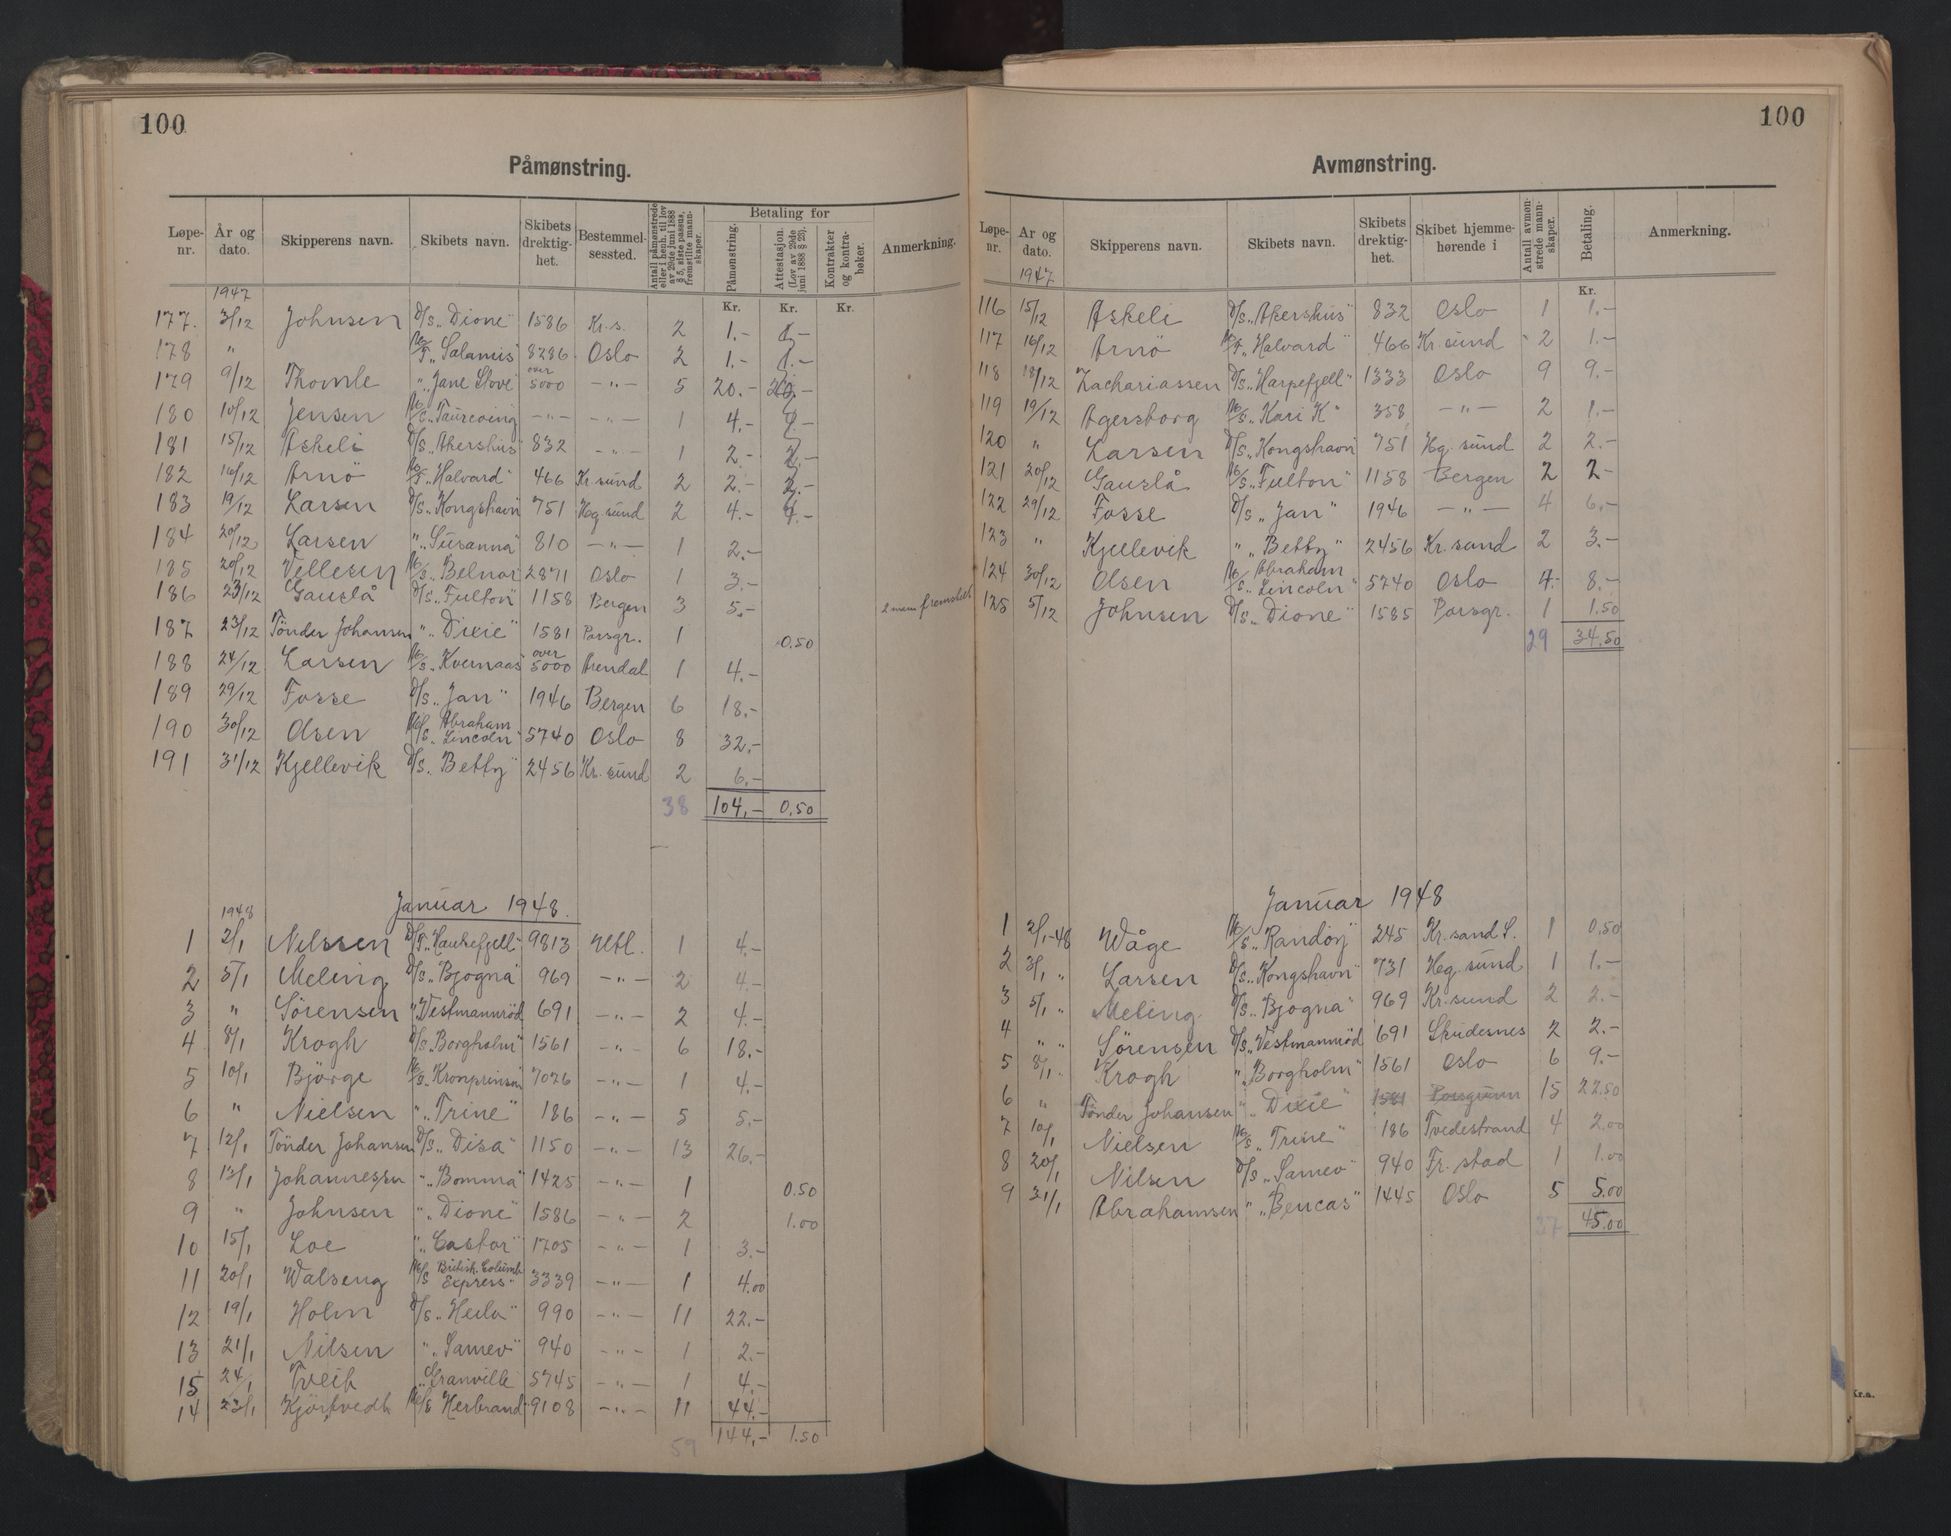 100
Påmønstring.
Løpenr. År og dato. Skipperens navn. Skibets navn. Skibets drektighet. Bestemmelsessted. Antall påmønstrede eller i henh. til lov av 29de juni 1888 § 5, siste passus, fremstilte mannskaper. Betaling for Påmønstring. Attestasjon. (Lov av 29de juni 1888 § 23). Kontrakter og kontrabøker. Anmerkning.
1947 Kr. Kr. Kr.
177. 3/12 Johnsen D/S „Dione" 1586 Kr.s. 2 1.-
178 " M/T „Salamis" 8286 Oslo 2 1.- 1.-
179 9/12 Thomle " „Jane Stove" over 5000 -"- 5 20.-
180 10/12 Jensen M/S „Taurewing -"- -"- 1 4.-
181 15/12 Askeli D/S „Akershus" 832 -"- 1 2.- 2.-
182 16/12 Arnö M/F „Halvard" 466 Kr sund 2 2.- 2.-
183 19/12 Larsen D/S „Kongshavn" 751 Hg. sund 2 4.-
184 20/12 Larsen " „Susanna" 810 -"- 1 2.-
185 20/12 Vellesen M/S „Belnor" 2871 Oslo 1 3.-
186 23/12 Gauslå D/S „Fulton" 1158 Bergen 3 5.- 2 mann fremstilt
187 23/12 Tönder Johansen " „Dixie" 1581 Porsgr. 1 0.50
188 24/12 Larsen M/S „Kvernaas" over 5000 Arendal 1 4.-
189 29/12 Fosse D/S „Jan" 1946 Bergen 6 18.-
190 30/12 Olsen M/S „Abraham Lincoln" 5740 Oslo 8 32.-
191 31/12 Kjellevik D/S „Betty" 2456 Kr. sund 2 6.-
38 104.- 0.50
Januar 1948.
1948
1 2/1 Nilssen D/T „Haukefjell" 9813 Utl. 1 4.-
2 5/1 Meling D/S „Bjogna" 969 -"- 2 4.-
3 " Sörensen " „Vestmannröd 691 -"- 2 4.-
4 8/1 Krogh D/S „Borgholm" 1561 -"- 6 18.-
5 10/1 Björge M/S „Kronprinsen 7026 -"- 1 4.-
6 " Nielsen " „Trine" 186 -"- 5 5.-
7 12/1 Tönder Johansen D/S „Disa" 1150 -"- 13 26.-
8 13/1 Johannessen " „Bomma" 1425 -"- 1 0.50
9 " Johnsen " „Dione" 1586 -"- 2 1.00
10 15/1 Loe " „Castor" 1705 -"- 1 3.-
11 20/1 Walseng M/S British Columb. Express" 3339 -"- 1 4.00
12 19/1 Holm D/S „Heila" 990 -"- 11 22.-
13 21/1 Nilsen " „Samev" 940 -"- 1 2.-
15 24/1 Tveit „Granville 5745 -"- 1 4.-
14 23/1 M/S Herbrand 9108 -"- 11 44.-
59 144.- 1.50
100
Avmønstring.
Løpenr. År og dato. Skipperens navn. Skibets navn. Skibets drektighet. Skibet hjemmehørende i Antall avmønstrede mannskaper. Betaling. Anmerkning.
1947 Kr.
116 15/12 Askeli D/S „Akershus" 832 Oslo 1 1.-
117 16/12 Arnö M/F „Halvard" 466 Kr. sund 2 1.-
118 18/12 Zachariassen D/S „Harpefjell" 1333 Oslo 9 9.-
119 19/12 Agersborg M/S „Kari K" 358 -"- 2 1.-
120 " Larsen D/S „Kongshavn" 751 Hg. sund 2 2.-
121 20/12 Gauslå M/S „Fulton" 1158 Bergen 2 2-
122 29/12 Fosse D/S „Jan" 1946 -"- 4 6.-
123 " Kjellevik " „Betty" 2456 Kr. sund 2 3.-
124 30/12 Olsen M/S „Abraham Lincoln" 5740 Oslo 4 8.-
125 5/12 Johnsen D/S „Dione" 1585 Porsgr. 1 1.50
29 34.50
Januar 1948
1 2/1-48 Wåge M/S „Randöy" 245 Kr. sand S. 1 0.50
2 3/1 " Larsen D/S „Kongshavn" 731 Hg. sund 1 1.-
3 5/1 " Meling D/S „Bjogna" 969 Kr. sund 2 2.-
4 " " Sörensen D/S „Vestmannröd 691 Skudesnes 2 2.-
5 8/1 " Krogh " „Borgholm" 1561 Oslo 6 9.-
6 " Tönder Johansen " „Dixie" 1581 Porsgrunn 15 22.50
7 10/1 Nielsen M/S „Trine" 186 Tvedestrand 4 2.00
8 20/1 Nilsen D/S „Samev" 940 Fr. stad 1 1.00
9 31/1 Abrahamsen " „Bencas" 1445 Oslo 5 5.00
37 45.00
Kr.a.